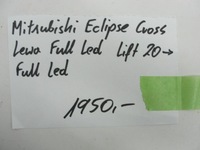 Mitsubishi Eclipse Cross
Lewa Full Led Lift 20→
Full Led
1950,-